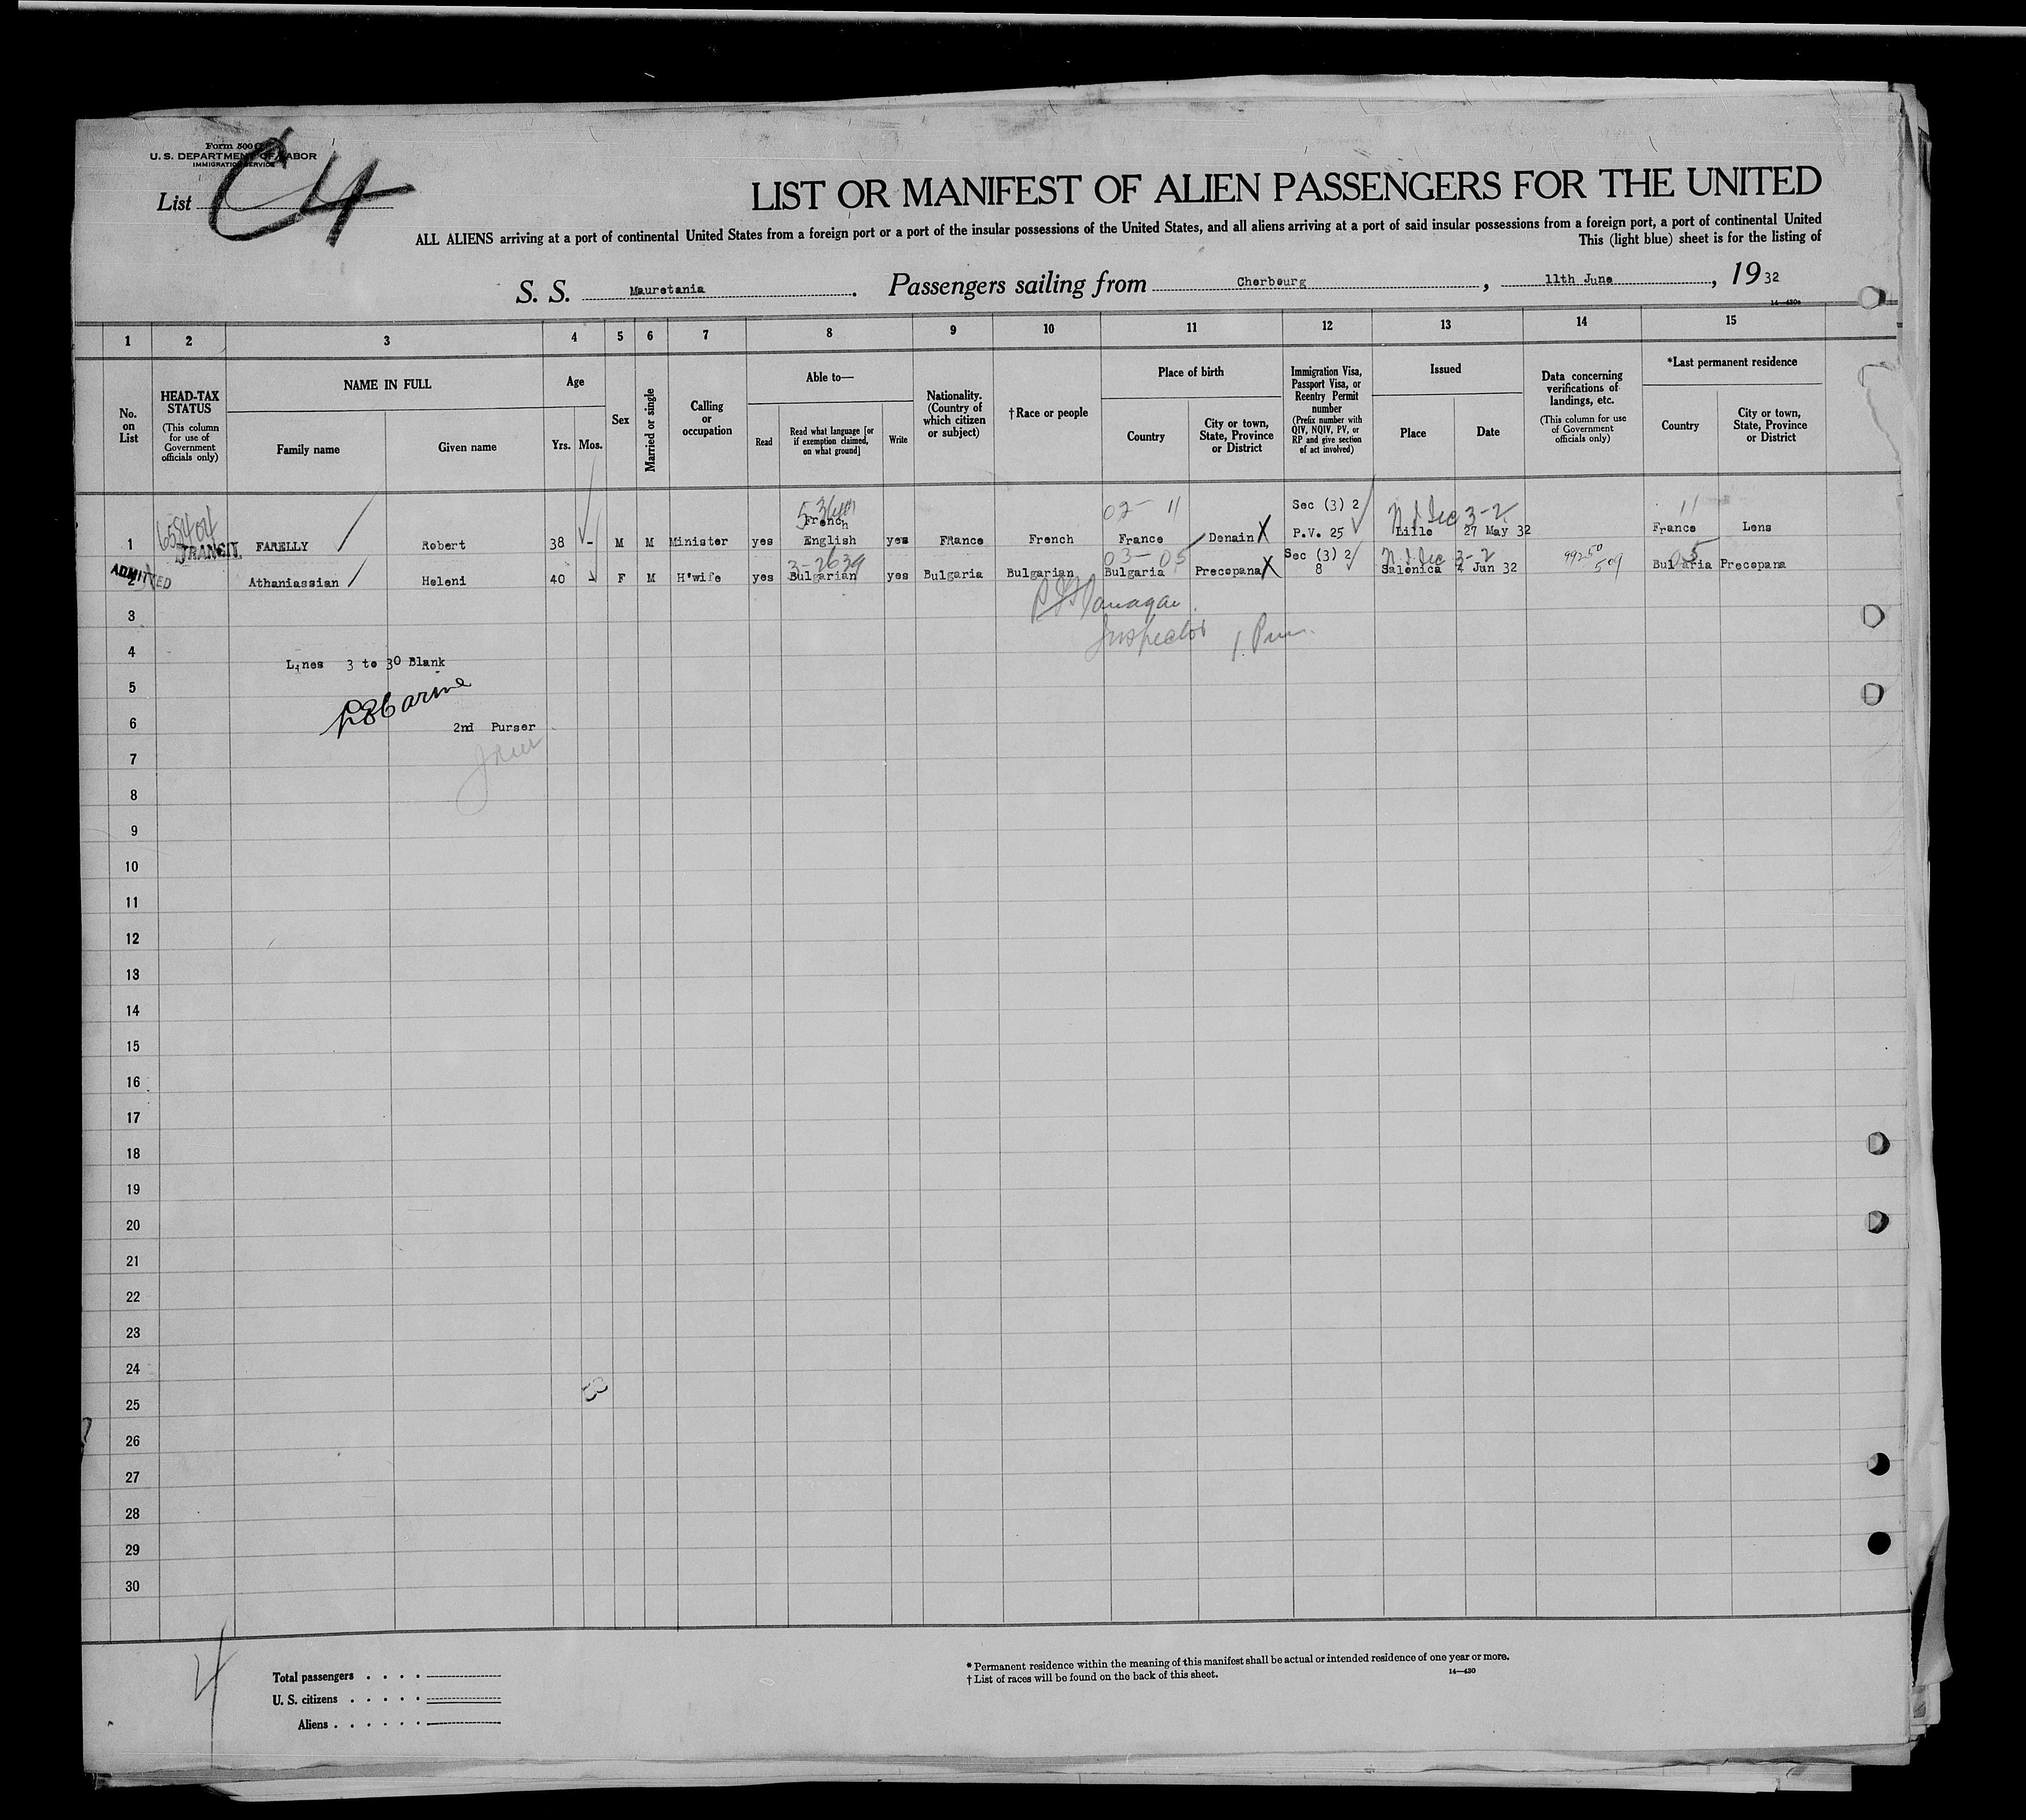 Form 500 C
U. S. DEPARTMENT OF LABOR
IMMIGRATION SERVICE
List C4
LIST OR MANIFEST OF ALIEN PASSENGERS FOR THE UNITED
ALL ALIENS arriving at a port of continental United States from a foreign port or a port of the insular possessions of the United States, and all aliens arriving at a port of said insular possessions from a foreign port, a port of continental United
This (light blue) sheet is for the listing of
S. S. Mauretania. Passengers sailing from Cherbourg, 11th June, 1932
14—430a
1 2 3 4 5 6 7 8 9 10 11 12 13 14 15
No. on List
HEAD-TAX STATUS
(This column for use of Government officials only)
NAME IN FULL
Family name
Given name
Age
Yrs. Mos.
Sex
Married or single
Calling or occupation
Able to—
Read
Read what language [or if exemption claimed, on what ground]
Write
Nationality. (Country of which citizen or subject)
†Race or people
Place of birth
Country
City or town, State, Province or District
Immigration Visa, Passport Visa, or Reentry Permit number
(Prefix number with QIV, NQIV, PV, or RP and give section of act involved)
Issued
Place
Date
Data concerning verifications of landings, etc.
(This column for use of Government officials only)
*Last permanent residence
Country
City or town, State, Province or District
02- 11
Sec (3) 2
3-2
11
1 TRANSIT. FARELLY Robert 38 - M M Minister yes French English yes France French France Denain X P.V. 25 Lille 27 May 32 France Lens
03- 05
Sec (3) 2
3-2
05
3-2639
2 ADMITTED Athaniassian Heleni 40 F M H'wife yes Bulgarian yes Bulgaria Bulgarian Bulgaria Precopana X 8 Salonica 4 Jun 32 Bulgaria Precopana
3
Inspector
4
Lines 3 to 30 Blank
5
6
2nd Purser
7
8
9
10
11
12
13
14
15
16
17
18
19
20
21
22
23
24
25
26
27
28
29
30
4
Total passengers
U. S. citizens
Aliens
* Permanent residence within the meaning of this manifest shall be actual or intended residence of one year or more.
† List of races will be found on the back of this sheet.
14—430